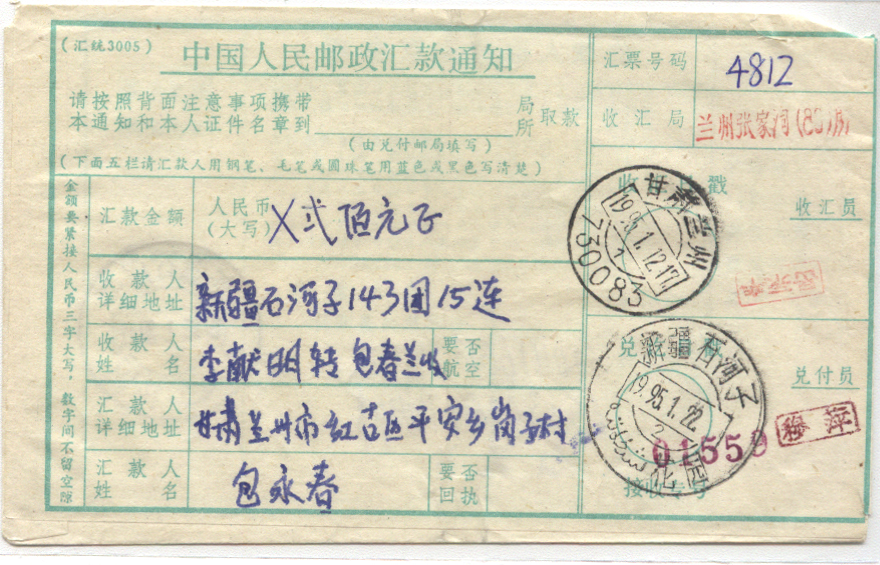 (汇统3005)
中国人民邮政汇款通知
请按照背面注意事项携带
本通知和本人证件名章到
局
所
取款
(由兑付邮局填写)
(下面五栏请汇款人用钢笔、毛笔或圆珠笔用蓝色或黑色写清楚)
汇票号码
4812
收汇局
兰州张家河(83)所
金额要紧接人民币三字大写,数字间不留空隙
汇款金额
人民币
(大写)
乂弍佰元正
收款人
详细地址
新疆石河子143团15连
收款人
姓名
李献明转包春兰收
要否
航空
汇款人
详细地址
甘肃兰州市红古区平安乡岗子村
汇款人
姓名
包永春
要否
回执
收汇
戳
收汇员
甘肃兰州
19 95.1.12.17
1
730083
兑付员
新疆石河子
19.95.1.22.
2
01559
接收专号